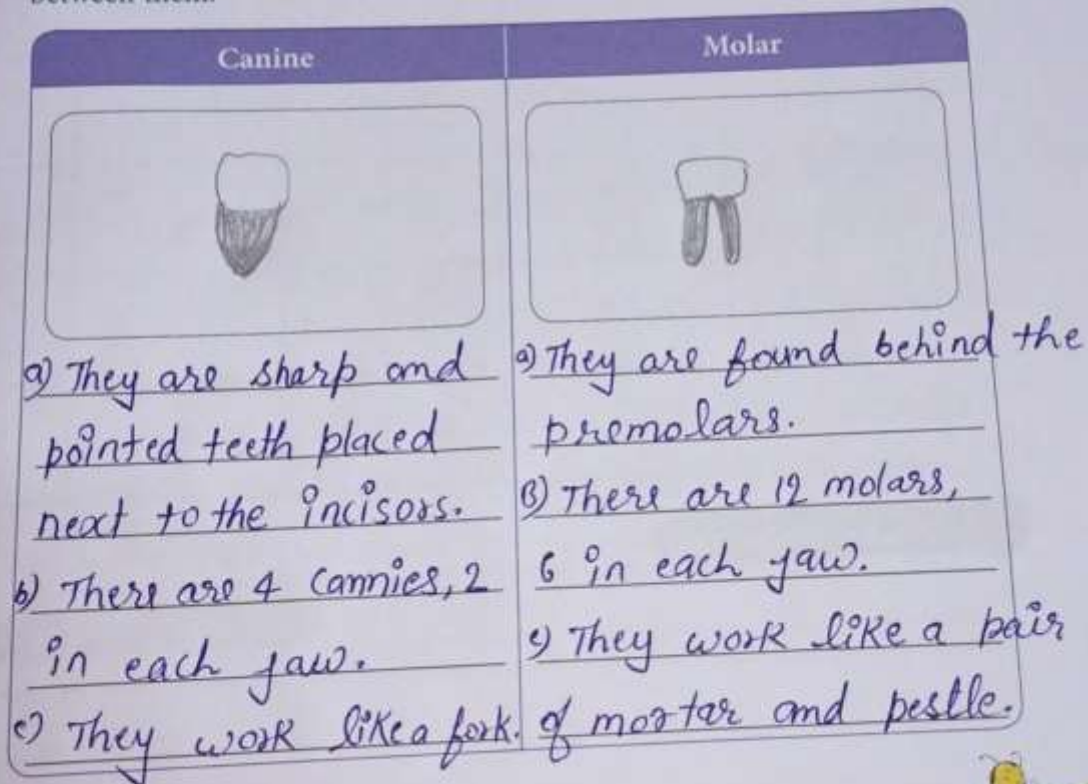 Canine
Molar
a) They are sharp and
pointed teeth placed
next to the incisors.
b) There are 4 cannies, 2
in each jaw.
c) They work like a fork.
a) They are found behind the
premolars.
B) There are 12 molars,
6 in each jaw.
c) They work like a pair
of mortar and pestle.